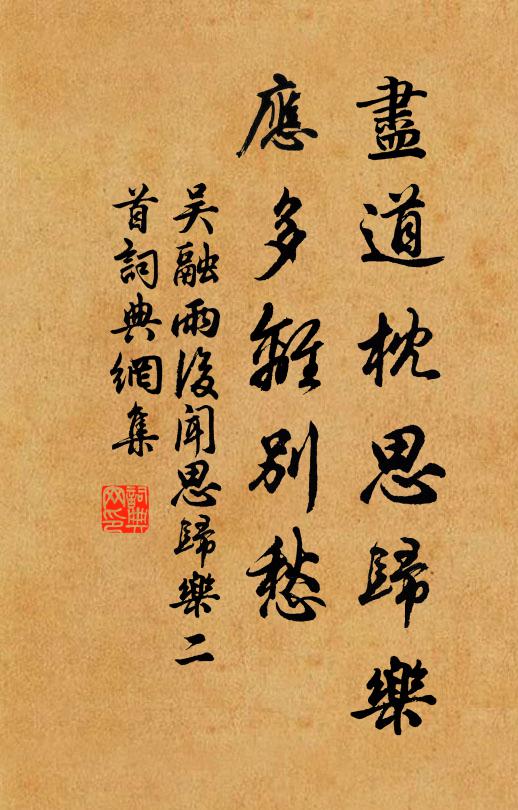 盡道枕思歸樂
應多離別愁
吴融雨後聞思歸樂二
首詞典網集
詞典
网印